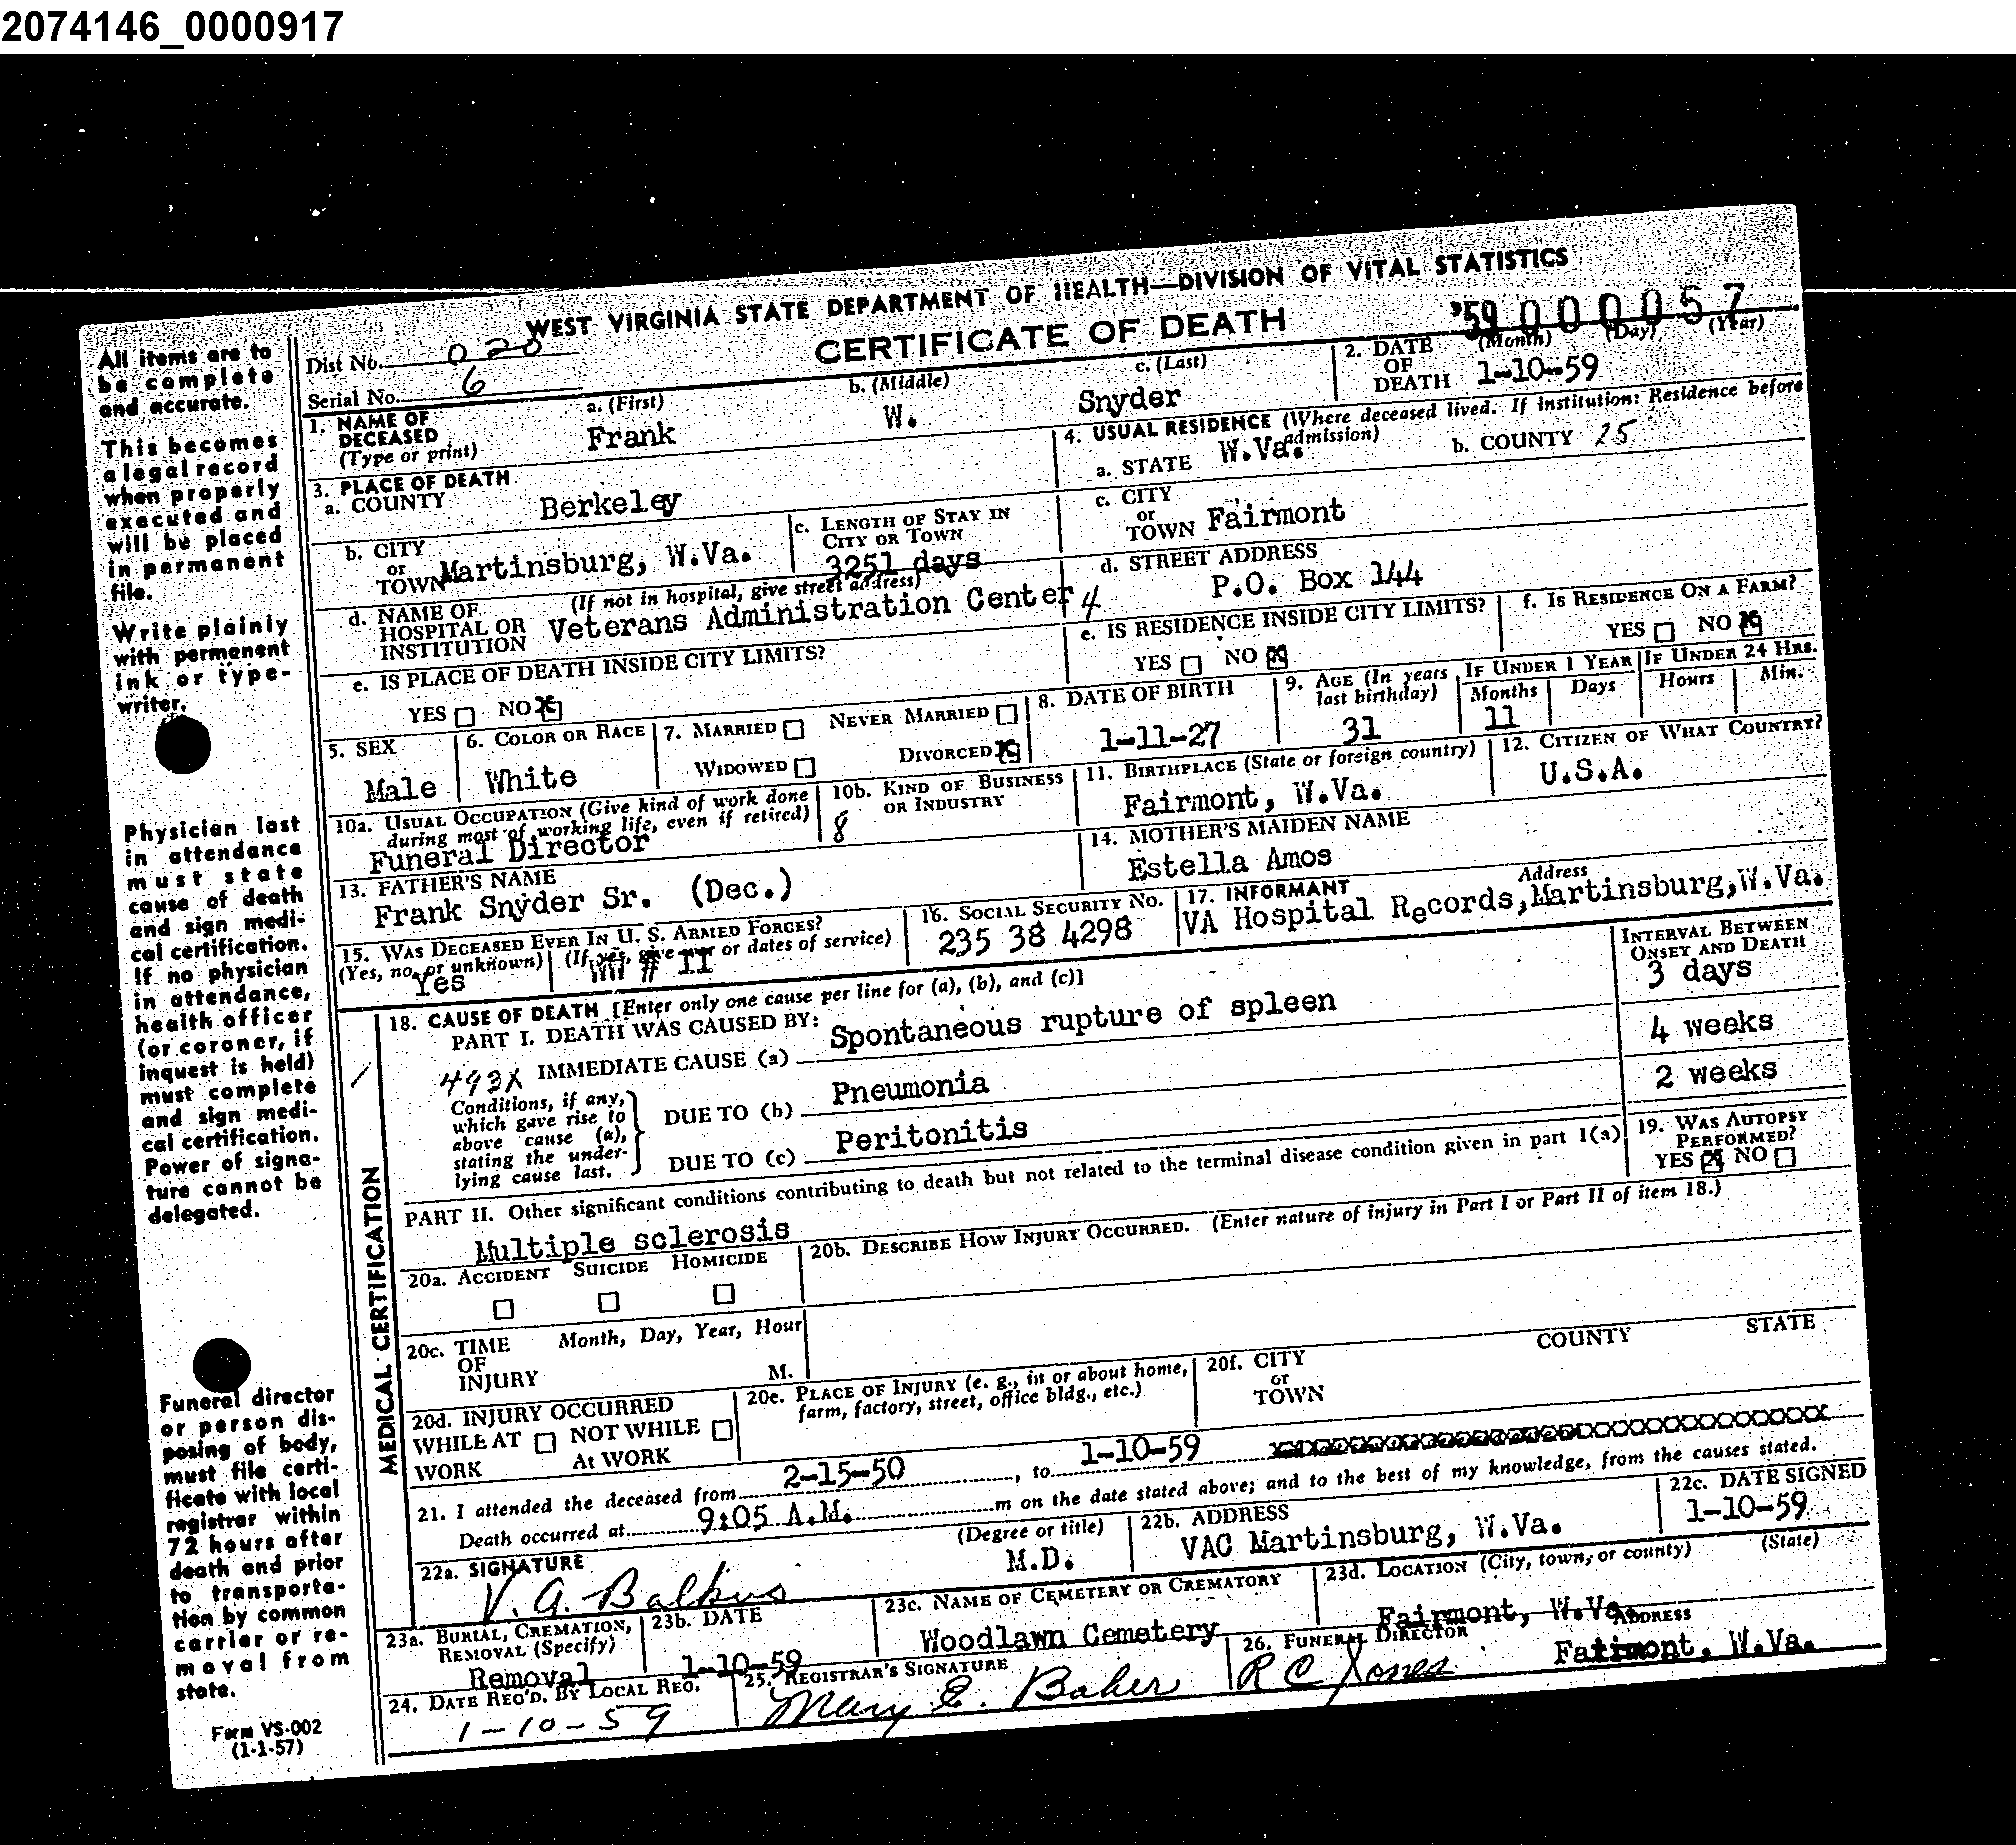 2074146_0000917
WEST VIRGINIA STATE DEPARTMENT OF HEALTH—DIVISION OF VITAL STATISTICS
CERTIFICATE OF DEATH
'59 000057
Dist No. 020
Serial No. 6
1. NAME OF DECEASED (Type or print) a. (First) Frank b. (Middle) W. c. (Last) Snyder
2. DATE OF DEATH (Month) (Day) (Year) 1-10-59
3. PLACE OF DEATH
a. COUNTY Berkeley
b. CITY or TOWN Martinsburg, W.Va.
c. LENGTH OF STAY IN CITY OR TOWN 3251 days
d. NAME OF HOSPITAL OR INSTITUTION (If not in hospital, give street address) Veterans Administration Center 4
e. IS PLACE OF DEATH INSIDE CITY LIMITS?
YES NO X
4. USUAL RESIDENCE (Where deceased lived. If institution: Residence before admission)
a. STATE W.Va. b. COUNTY 25
c. CITY or TOWN Fairmont
d. STREET ADDRESS P.O. Box 144
e. IS RESIDENCE INSIDE CITY LIMITS?
YES NO X
f. IS RESIDENCE ON A FARM?
YES NO X
5. SEX Male
6. COLOR OR RACE White
7. MARRIED NEVER MARRIED
WIDOWED DIVORCED X
8. DATE OF BIRTH 1-11-27
9. AGE (In years last birthday) 31
IF UNDER 1 YEAR Months 11 Days
IF UNDER 24 HRS. Hours Min.
10a. USUAL OCCUPATION (Give kind of work done during most of working life, even if retired) Funeral Director
10b. KIND OF BUSINESS OR INDUSTRY 8
11. BIRTHPLACE (State or foreign country) Fairmont, W.Va.
12. CITIZEN OF WHAT COUNTRY? U.S.A.
13. FATHER'S NAME Frank Snyder Sr. (Dec.)
14. MOTHER'S MAIDEN NAME Estella Amos
15. WAS DECEASED EVER IN U. S. ARMED FORCES?
(Yes, no, or unknown) Yes (If yes, give war or dates of service) WW # II
16. SOCIAL SECURITY NO. 235 38 4298
17. INFORMANT Address VA Hospital Records, Martinsburg, W.Va.
MEDICAL CERTIFICATION
18. CAUSE OF DEATH [Enter only one cause per line for (a), (b), and (c)]
INTERVAL BETWEEN ONSET AND DEATH
PART I. DEATH WAS CAUSED BY:
493X IMMEDIATE CAUSE (a) Spontaneous rupture of spleen 3 days
Conditions, if any, which gave rise to above cause (a), stating the underlying cause last.
DUE TO (b) Pneumonia 4 weeks
DUE TO (c) Peritonitis 2 weeks
PART II. Other significant conditions contributing to death but not related to the terminal disease condition given in part I(a)
Multiple sclerosis
19. WAS AUTOPSY PERFORMED?
YES X NO
20a. ACCIDENT SUICIDE HOMICIDE
20b. DESCRIBE HOW INJURY OCCURRED. (Enter nature of injury in Part I or Part II of item 18.)
20c. TIME OF INJURY Month, Day, Year, Hour M.
20d. INJURY OCCURRED
WHILE AT WORK NOT WHILE At WORK
20e. PLACE OF INJURY (e. g., in or about home, farm, factory, street, office bldg., etc.)
20f. CITY or TOWN COUNTY STATE
21. I attended the deceased from 2-15-50, to 1-10-59
Death occurred at 9:05 A.M. m on the date stated above; and to the best of my knowledge, from the causes stated.
22a. SIGNATURE V. A. Balkus (Degree or title) M.D.
22b. ADDRESS VAC Martinsburg, W.Va.
22c. DATE SIGNED 1-10-59
23a. BURIAL, CREMATION, REMOVAL (Specify) Removal
23b. DATE 1-10-59
23c. NAME OF CEMETERY OR CREMATORY Woodlawn Cemetery
23d. LOCATION (City, town, or county) (State) Fairmont, W.Va.
24. DATE REC'D. BY LOCAL REG. 1-10-59
25. REGISTRAR'S SIGNATURE Mary E. Baker
26. FUNERAL DIRECTOR R C Jones ADDRESS Fairmont, W.Va.
All items are to
be complete
and accurate.
This becomes
a legal record
when properly
executed and
will be placed
in permanent
file.
Write plainly
with permanent
ink or type-
writer.
Physician last
in attendance
must state
cause of death
and sign medi-
cal certification.
If no physician
in attendance,
health officer
(or coroner, if
inquest is held)
must complete
and sign medi-
cal certification.
Power of signa-
ture cannot be
delegated.
Funeral director
or person dis-
posing of body,
must file certi-
ficate with local
registrar within
72 hours after
death and prior
to transporta-
tion by common
carrier or re-
moval from
state.
Form VS-002
(1-1-57)